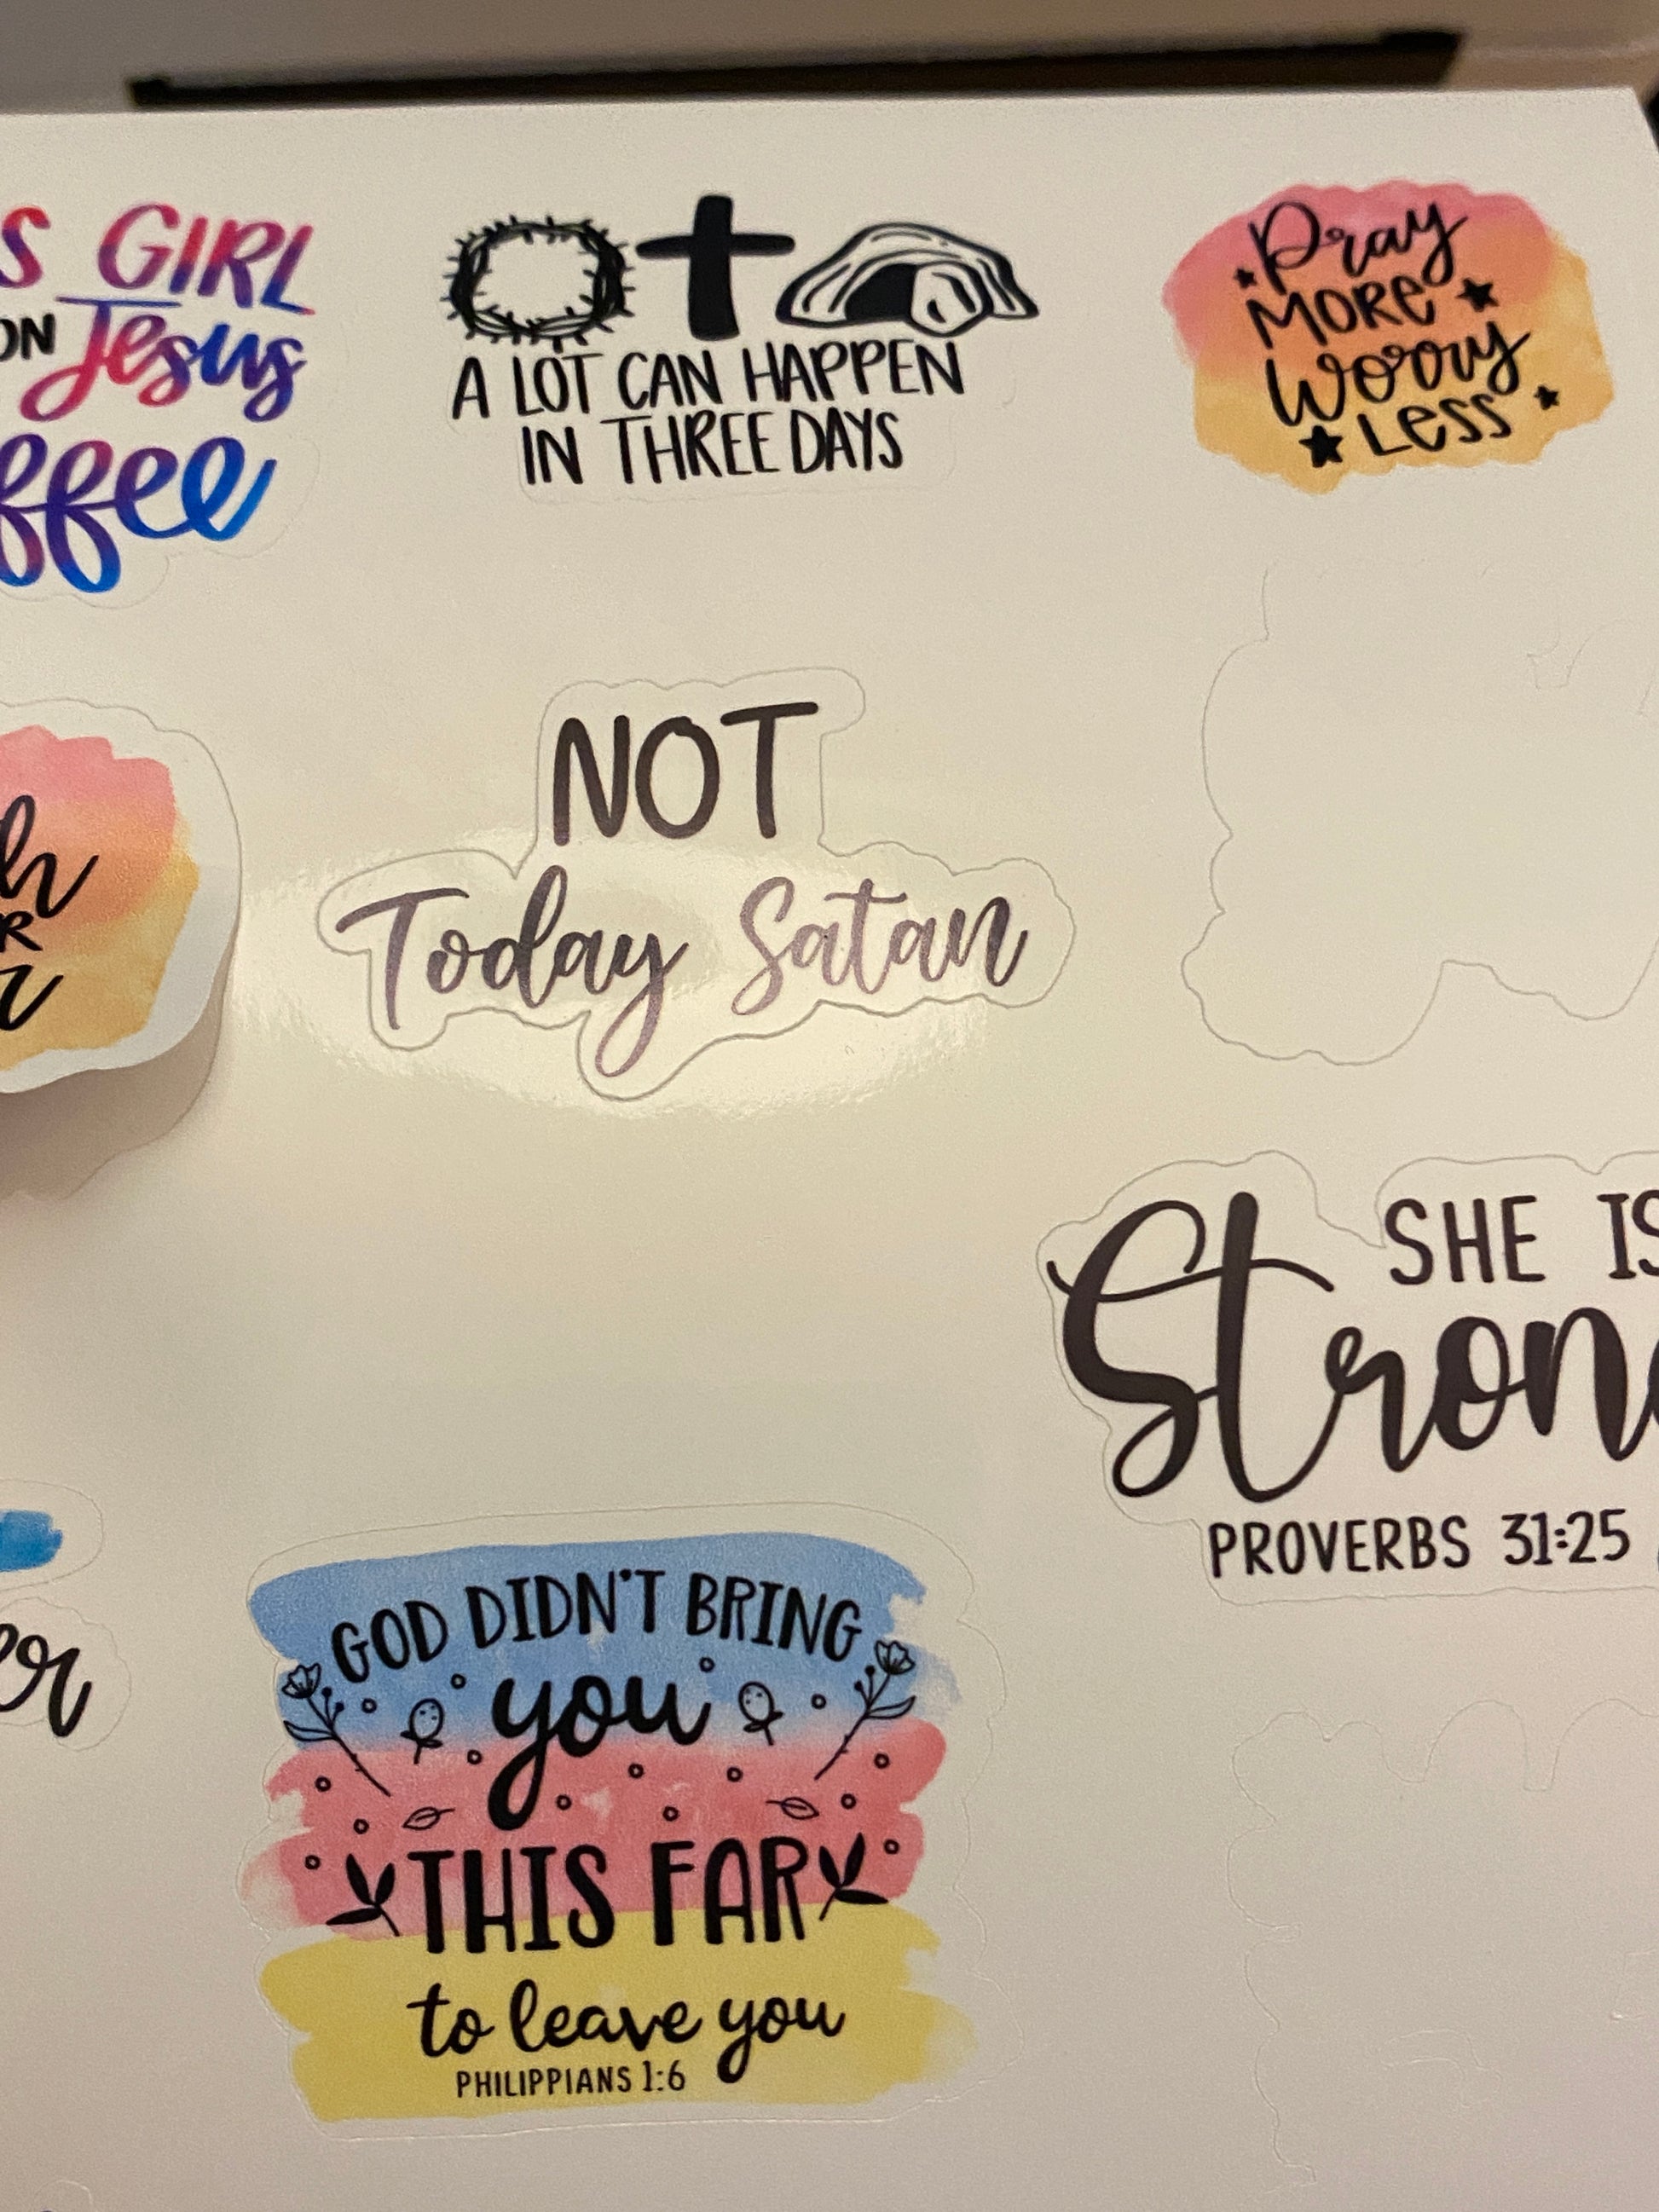 GIRL
ON Jesus
A LOT CAN HAPPEN
IN THREE DAYS
Pray
MORE
Worry
LESS
NOT
Today Satan
SHE IS
PROVERBS 31:25
GOD DIDN'T BRING
you
THIS FAR
to leave you
PHILIPPIANS 1:6